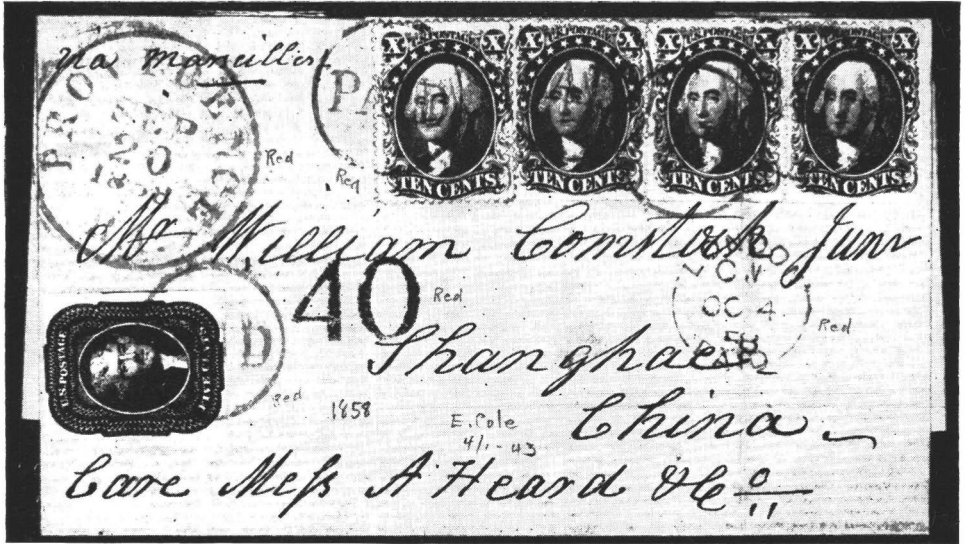 Via Marseilles
PROVIDENCE
SEP
20
PA
X U.S. POSTAGE X
TEN CENTS.
X U.S. POSTAGE X
TEN CENTS.
X U.S. POSTAGE X
TEN CENTS.
X U.S. POSTAGE X
TEN CENTS.
Red
Red
Mr William Comstock Junr
40
Red
OC 4
58
PAID
Red
U.S. POSTAGE
FIVE CENTS
D
Red
Shanghae
1858
E. Cole
4/1-43
China
Care Mess A Heard & Co